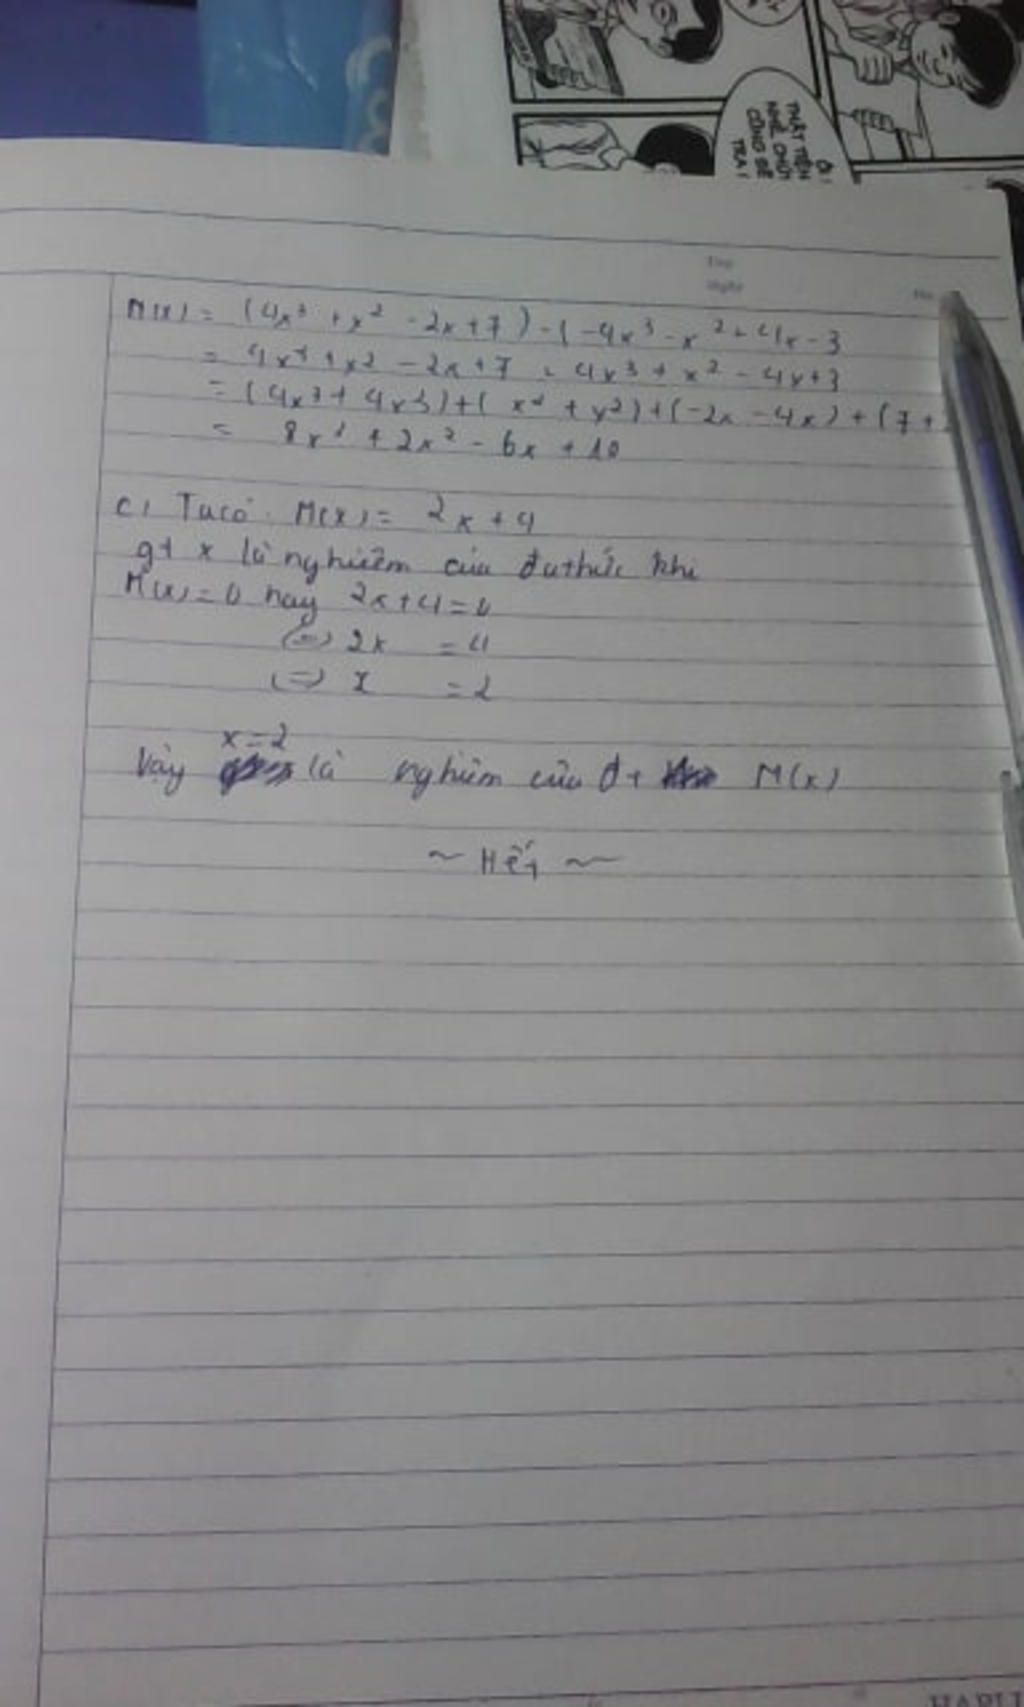 THẬT TIỆN
NHÉ, CHÚT
CÔNG BỀ
TRAI
M(x) = (4x³ + x² - 2x + 7) - (-4x³ - x² + 4x - 3
= 4x³ + x² - 2x + 7 + 4x³ + x² - 4x + 3
= (4x³ + 4x³) + (x² + x²) + (-2x - 4x) + (7 +
= 8x³ + 2x² - 6x + 10
c, Ta có: M(x) = 2x + 4
gt x là nghiệm của đa thức khi
M(x) = 0 hay 2x + 4 = 0
(=) 2x = 4
(=) x = 2
x = 2
Vậy là nghiệm của đt M(x)
~ Hết ~